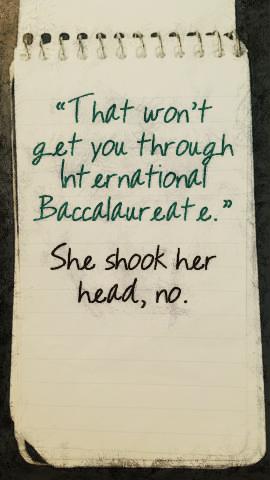 “That won’t
get you through
International
Baccalaureate.”
She shook her
head, no.